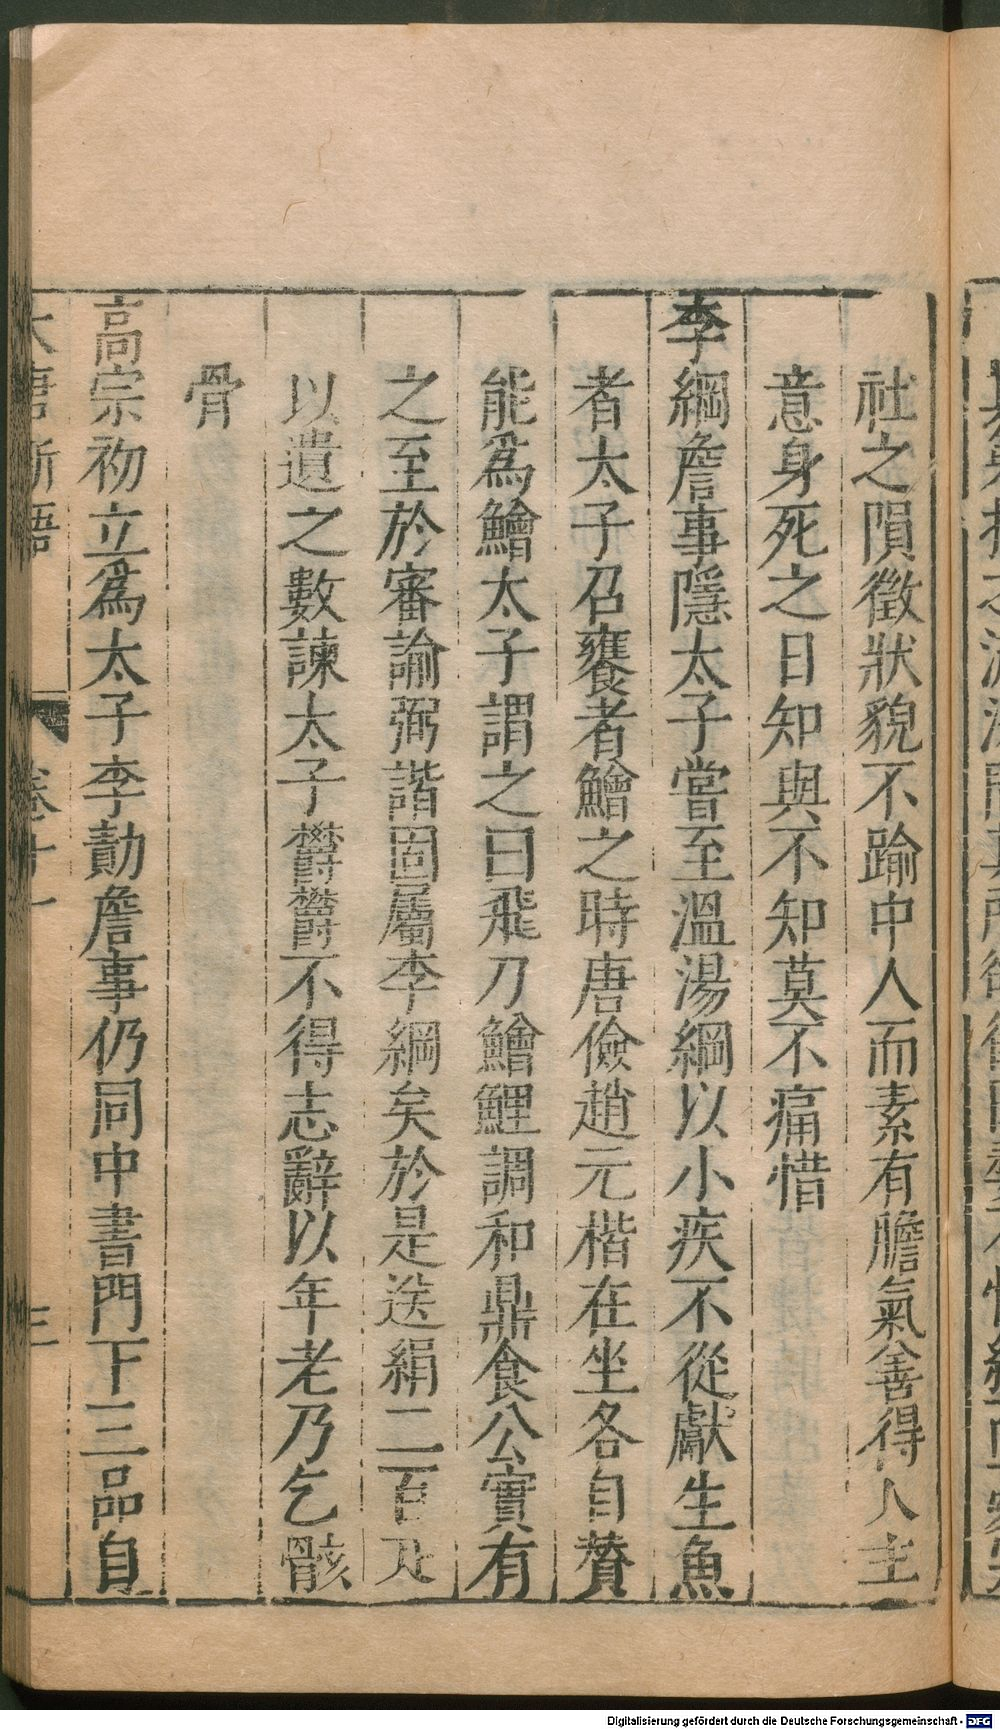 社之隕徵狀貌不踰中人而素有膽氣善得人主
意身死之日知與不知莫不痛惜
李綱詹事隱太子嘗至溫湯綱以小疾不從獻生魚
者太子召饔者鱠之時唐儉趙元楷在坐各自贊
能爲鱠太子謂之曰飛刀鱠鯉調和鼎食公實有
之至於審諭弼諧固屬李綱矣於是送絹二百疋
以遺之數諫太子欝欝不得志辭以年老乃乞骸
骨
高宗初立爲太子李勣詹事仍同中書門下三品自
大唐新語
卷十一
三
Digitalisierung gefördert durch die Deutsche Forschungsgemeinschaft - DFG